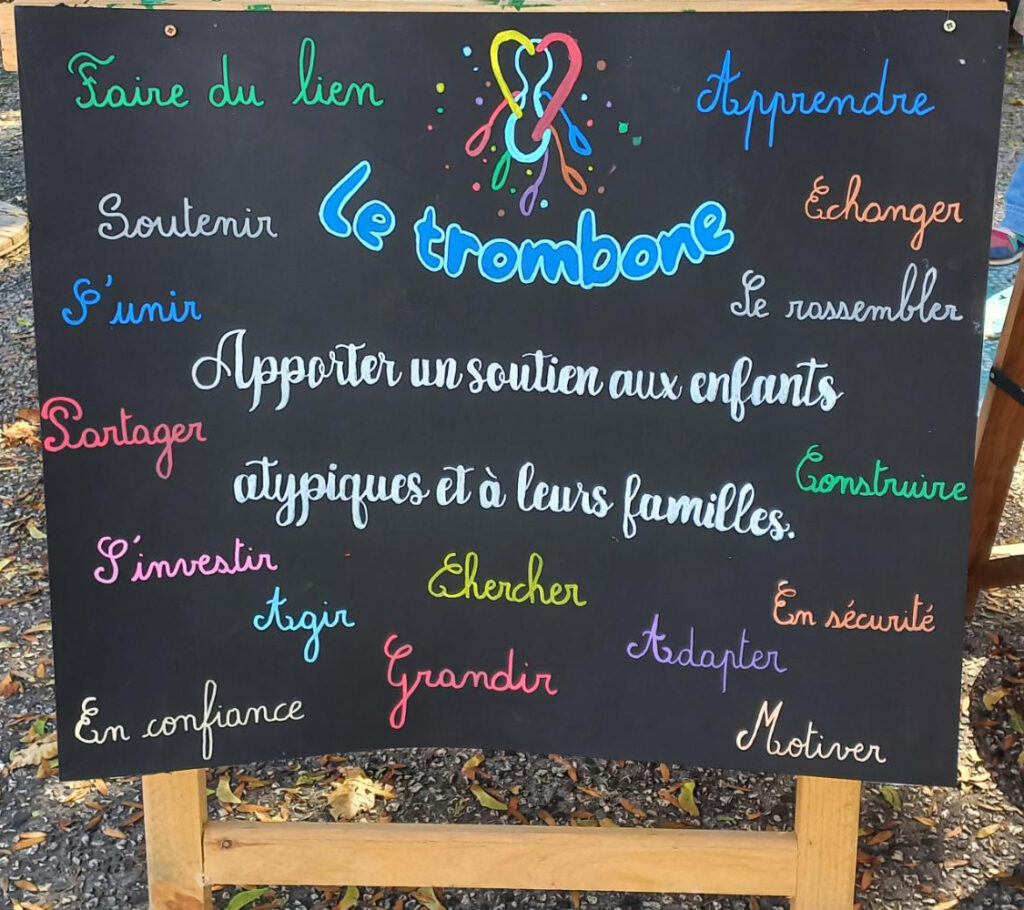 Faire du lien
Apprendre
Soutenir
Le trombone
Echanger
S'unir
Se rassembler
Apporter un soutien aux enfants
Partager
atypiques et à leurs familles.
Construire
S'investir
Chercher
Agir
En sécurité
Grandir
Adapter
En confiance
Motiver